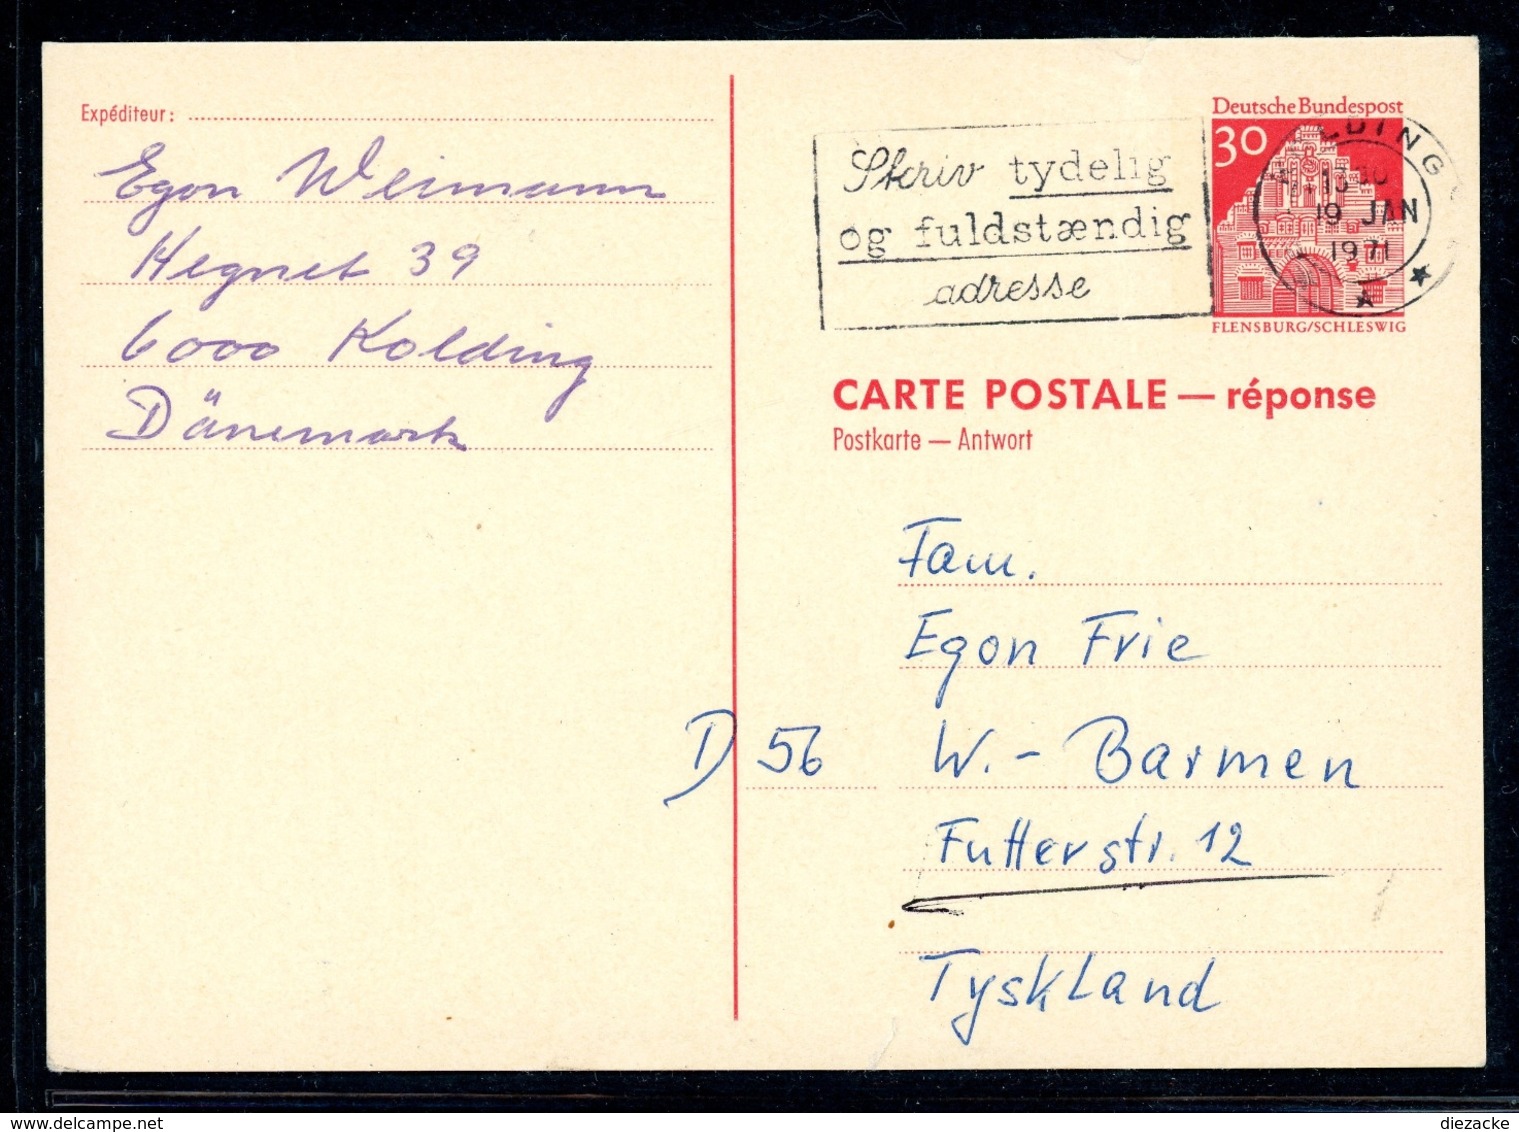 Expéditeur:
Egon Weimann
Hegnet 39
6000 Kolding
Dänemark
Skriv tydelig
og fuldstændig
adresse
Deutsche Bundespost
30
LDING
19 JAN
1971
FLENSBURG/SCHLESWIG
CARTE POSTALE — réponse
Postkarte — Antwort
Fam.
Egon Frie
D 56 W.-Barmen
Futterstr. 12
Tyskland
delcampe.net
diezacke